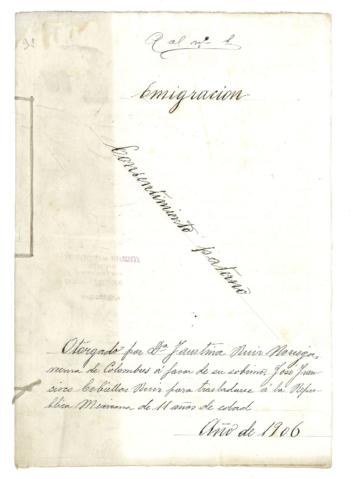 Emigracion
Consentimiento paterno
Otorgado por Dª Faustina Ruiz Noriega,
de Colombres á favor de su sobrino José Fran-
cisco Ruiz para trasladarse á la Repú-
blica Mexicana de 11 años de edad
Año de 1906